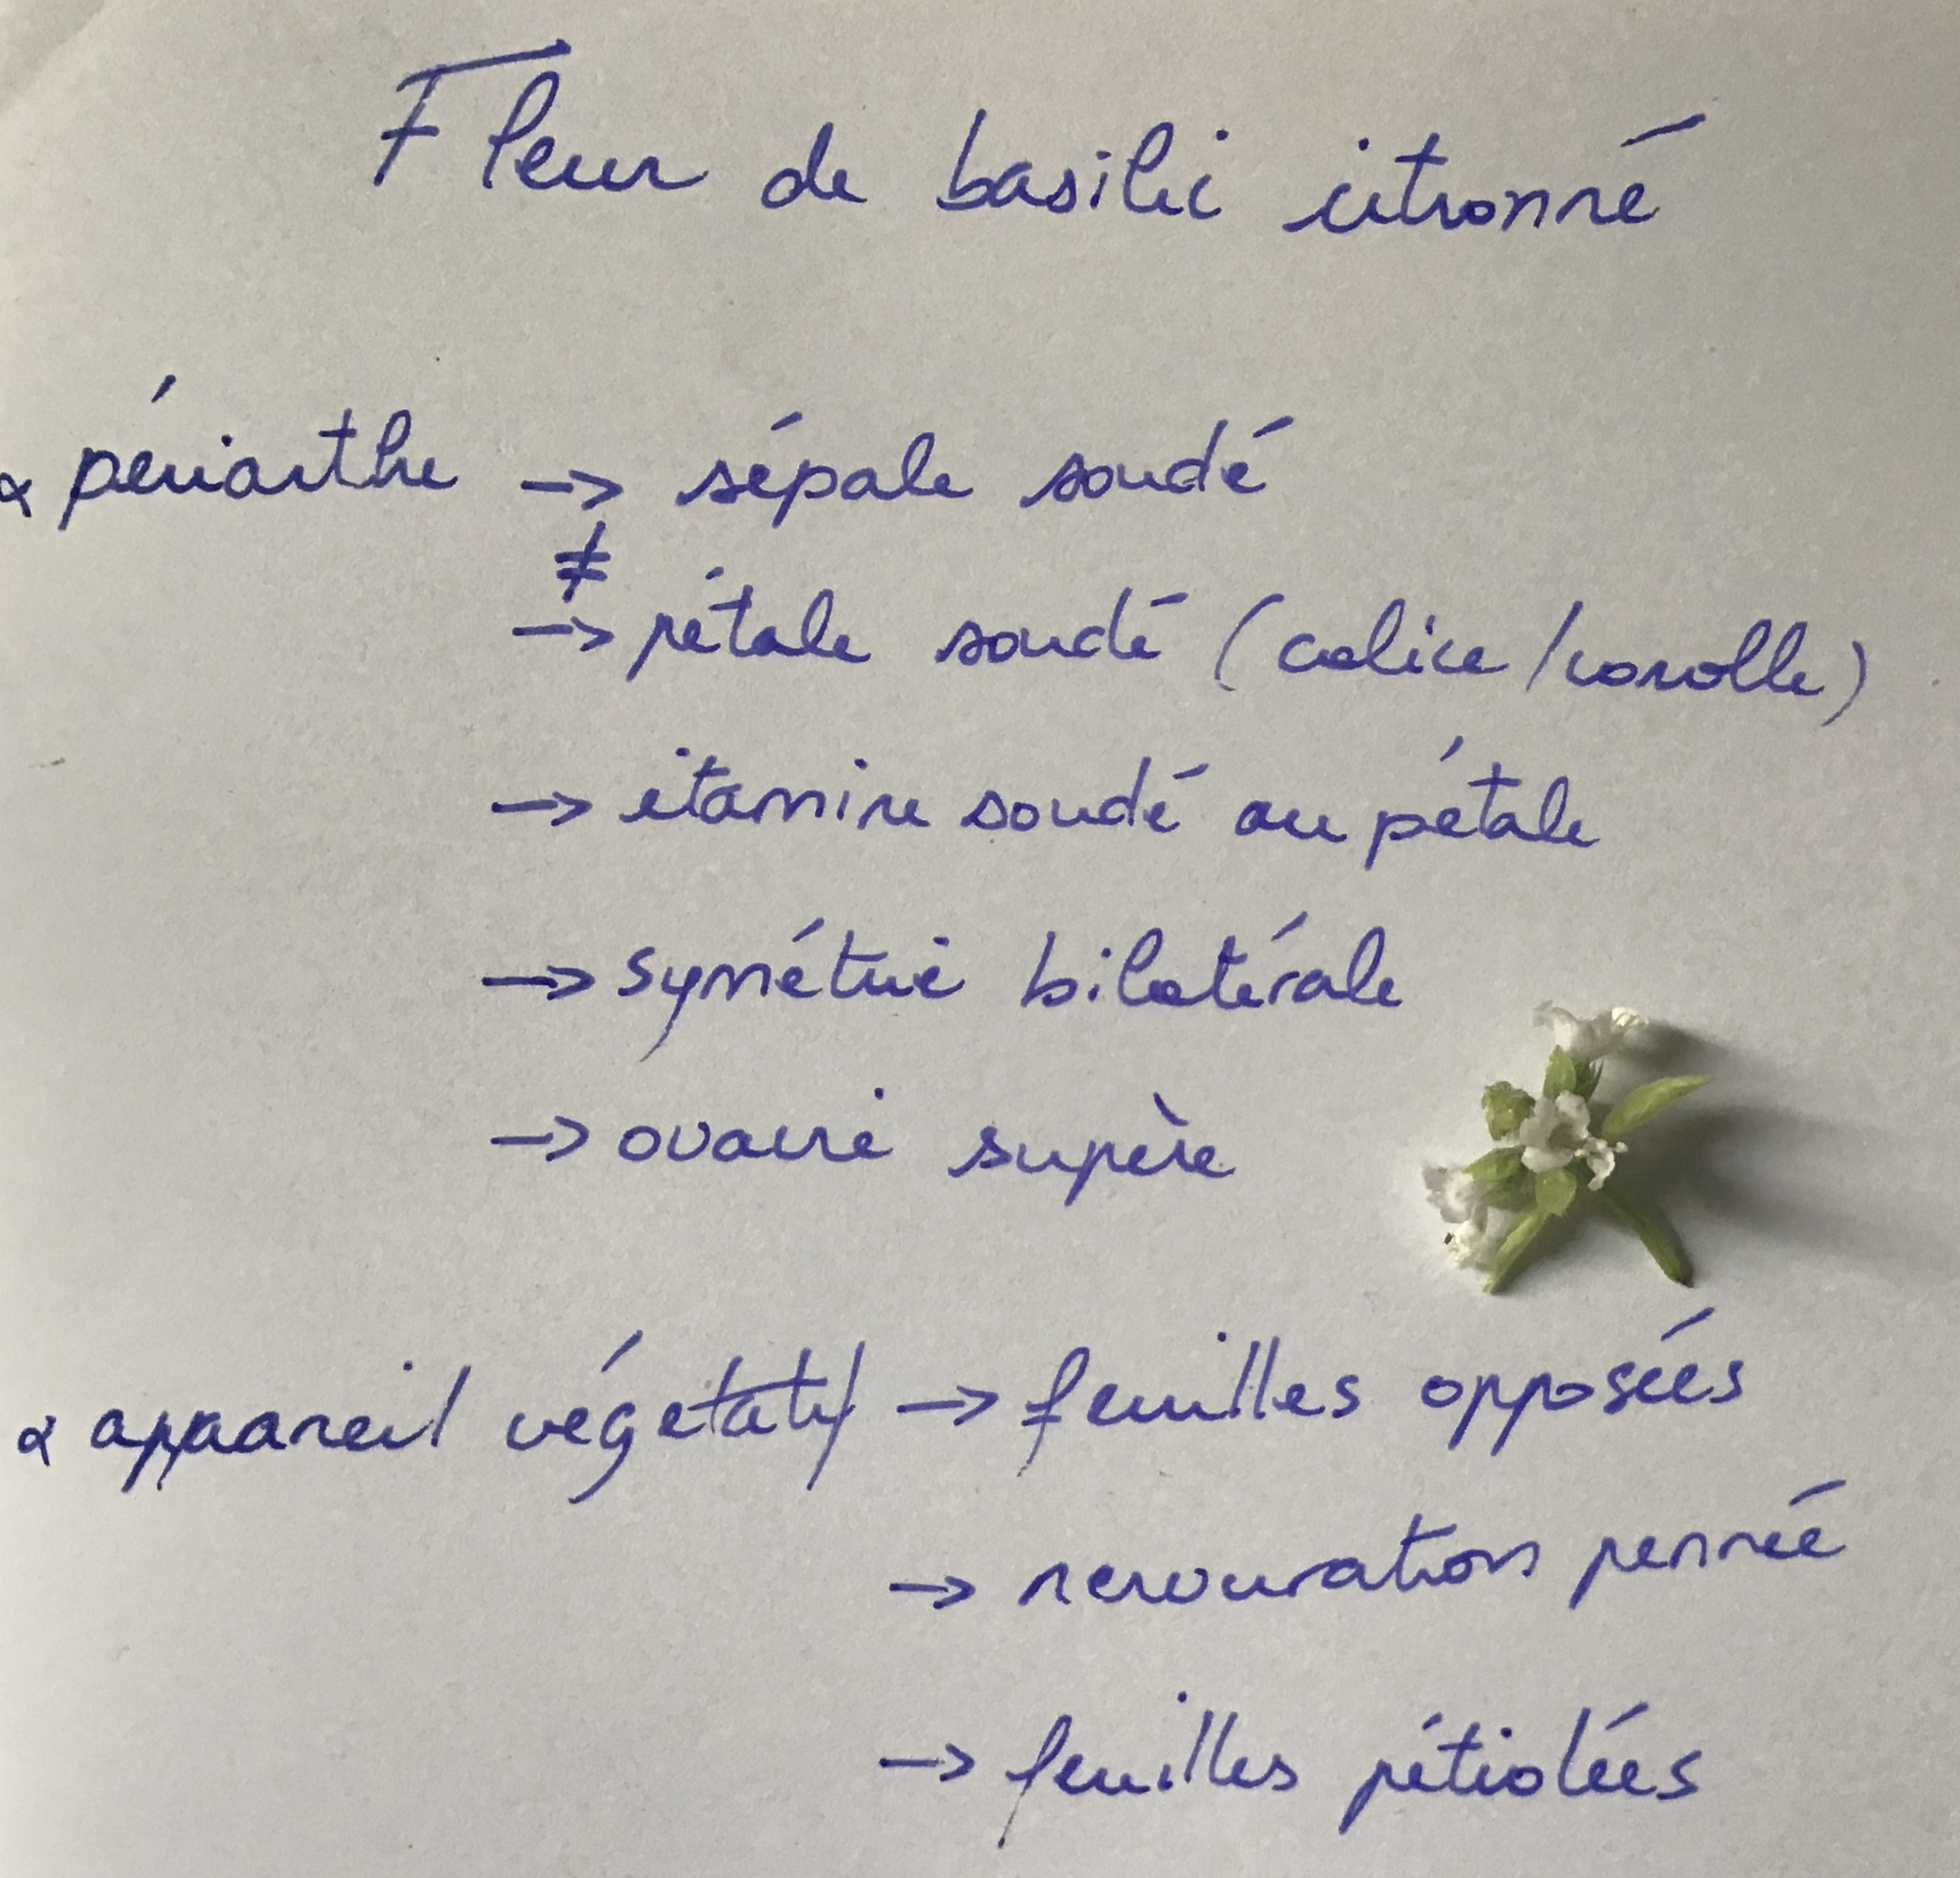 Fleur de basilic citronné
α périanthe → sépale soudé
≠
→ pétale soudé (calice/corolle)
→ etamine soudé au pétale
→ symétrie bilatérale
→ ovaire supère
α appaareil végetatif → feuilles opposées
→ nervuration pennée
→ feuilles pétiolées